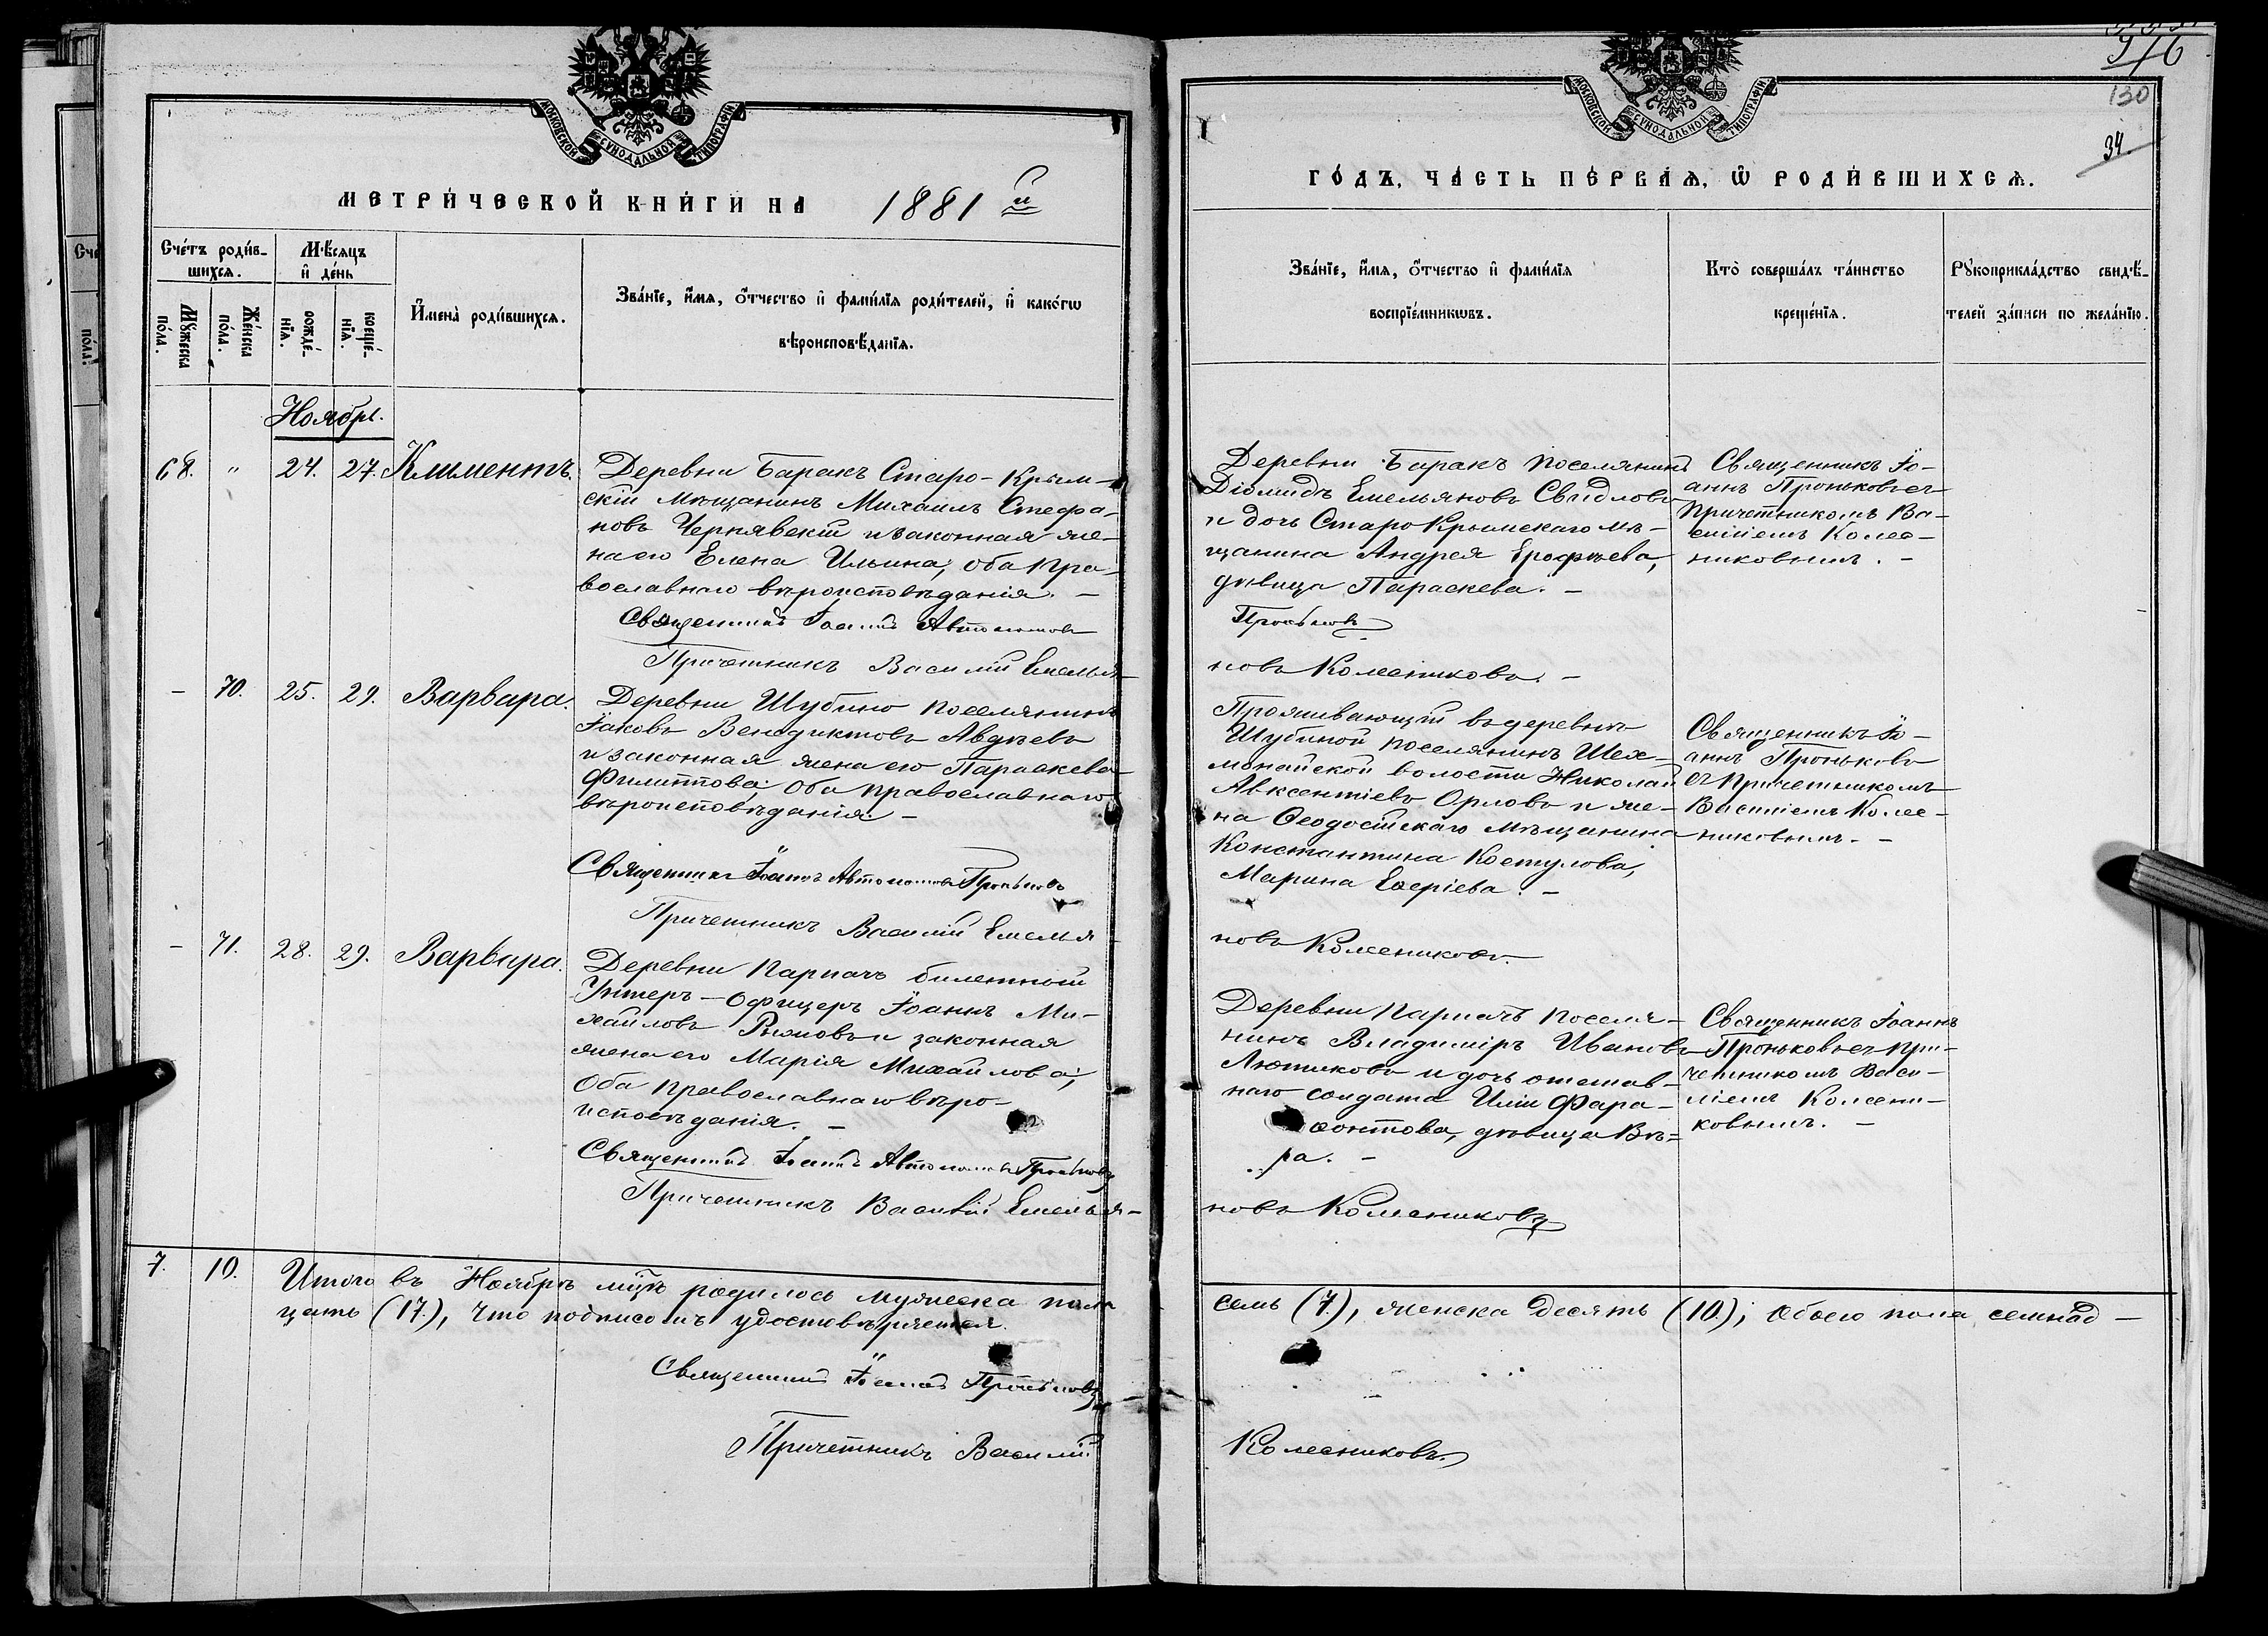 МОСКОВСКОЙ СѴНОДАЛЬНОЙ ТИПОГРАФІИ
МЕТРИ́ЧЕСКОЙ КНИ́ГИ НА 1881 й
Сче́тъ роди́в-
шихсѧ.
Мѣ́сѧцъ
и҆ де́нь
Мꙋ́жеска
по́ла.
Же́нска
по́ла.
рожде́-
нїѧ.
креще́-
нїѧ.
И҆мена̀ роди́вшихсѧ.
Зва́нїе, и҆́мѧ, ѻ҆́тчество и҆ фами́лїѧ роди́телей, и҆ како́гѡ
вѣроисповѣ́данїѧ.
Ноябрь.
68. " 24. 27. Климентъ.
Деревни Баракъ Старо-Крым-
скій мѣщанинъ Михаилъ Стефа-
новъ Чернявскій и законная же-
на его Елена Ильина, оба пра-
вославнаго вѣроисповѣданія. –
Священникъ Іоаннъ Автономовъ
Причетникъ Василій Емелья-
– 70. 25. 29. Варвара.
Деревни Шубино поселянинъ
Іаковъ Венедиктовъ Авдѣевъ
и законная жена его Параскева
Филиппова, оба православнаго
вѣроисповѣданія. –
Священникъ Іоаннъ Автономовъ Проньковъ
Причетникъ Василій Емелья-
– 71. 28. 29. Варвара.
Деревни Парпачъ билетный
Унтеръ-офицеръ Іоаннъ Ми-
хайловъ и законная
жена его Марія Михайлова,
оба православнаго вѣро-
исповѣданія. –
Священникъ Іоаннъ Автономовъ Проньковъ
Причетникъ Василій Емелья-
7. 10. Итого въ Ноябрѣ мцѣ родилось мужеска пола
цать (17.), что подписомъ удостовѣряется.
Священникъ Іоаннъ Проньковъ
Причетникъ Василій
МОСКОВСКОЙ СѴНОДАЛЬНОЙ ТИПОГРАФІИ
976
130
34.
ГО́ДЪ, ЧА́СТЬ ПЕ́РВАѦ, Ѽ РОДИ́ВШИХСѦ.
Зва́нїе, и҆́мѧ, ѻ҆́тчество и҆ фами́лїѧ
воспрїе́мникѡвъ.
Кто̀ соверша́лъ та́инство
креще́нїѧ.
Рꙋкоприкла́дство свидѣ́-
телей за́писи по жела́нїю.
Деревни Баракъ поселянинъ
Діомидъ Емельяновъ Свидловъ
и дочь Старо Крымскаго мѣ-
щанина Андрея Ерофѣева,
дѣвица Параскева. –
Проньковъ
новъ Колесниковъ. –
Священникъ Іо-
аннъ Проньковъ съ
Причетникомъ Ва-
силіемъ Колес-
никовымъ. –
Проживающій въ деревнѣ
Шубиной поселянинъ Шех-
монайской волости Николай
Авксентіевъ Орловъ и же-
на Ѳеодосійскаго мѣщанина
Константина Костулова,
Марина
новъ Колесниковъ.
Священникъ Іо-
аннъ Проньковъ
съ Причетникомъ
Василіемъ Колес-
никовымъ. –
Деревни Парпачъ поселя-
нинъ Владиміръ Ивановъ
Лютиковъ и дочь отстав-
наго солдата Иліи Фара-
фонтова, дѣвица Вѣ-
ра. –
новъ Колесниковъ
Священникъ Іоаннъ
Проньковъ съ при-
четникомъ Васи-
ліемъ Колесни-
ковымъ. –
семь (7.), женска десять (10.), обоего пола семнад –
Колесниковъ.